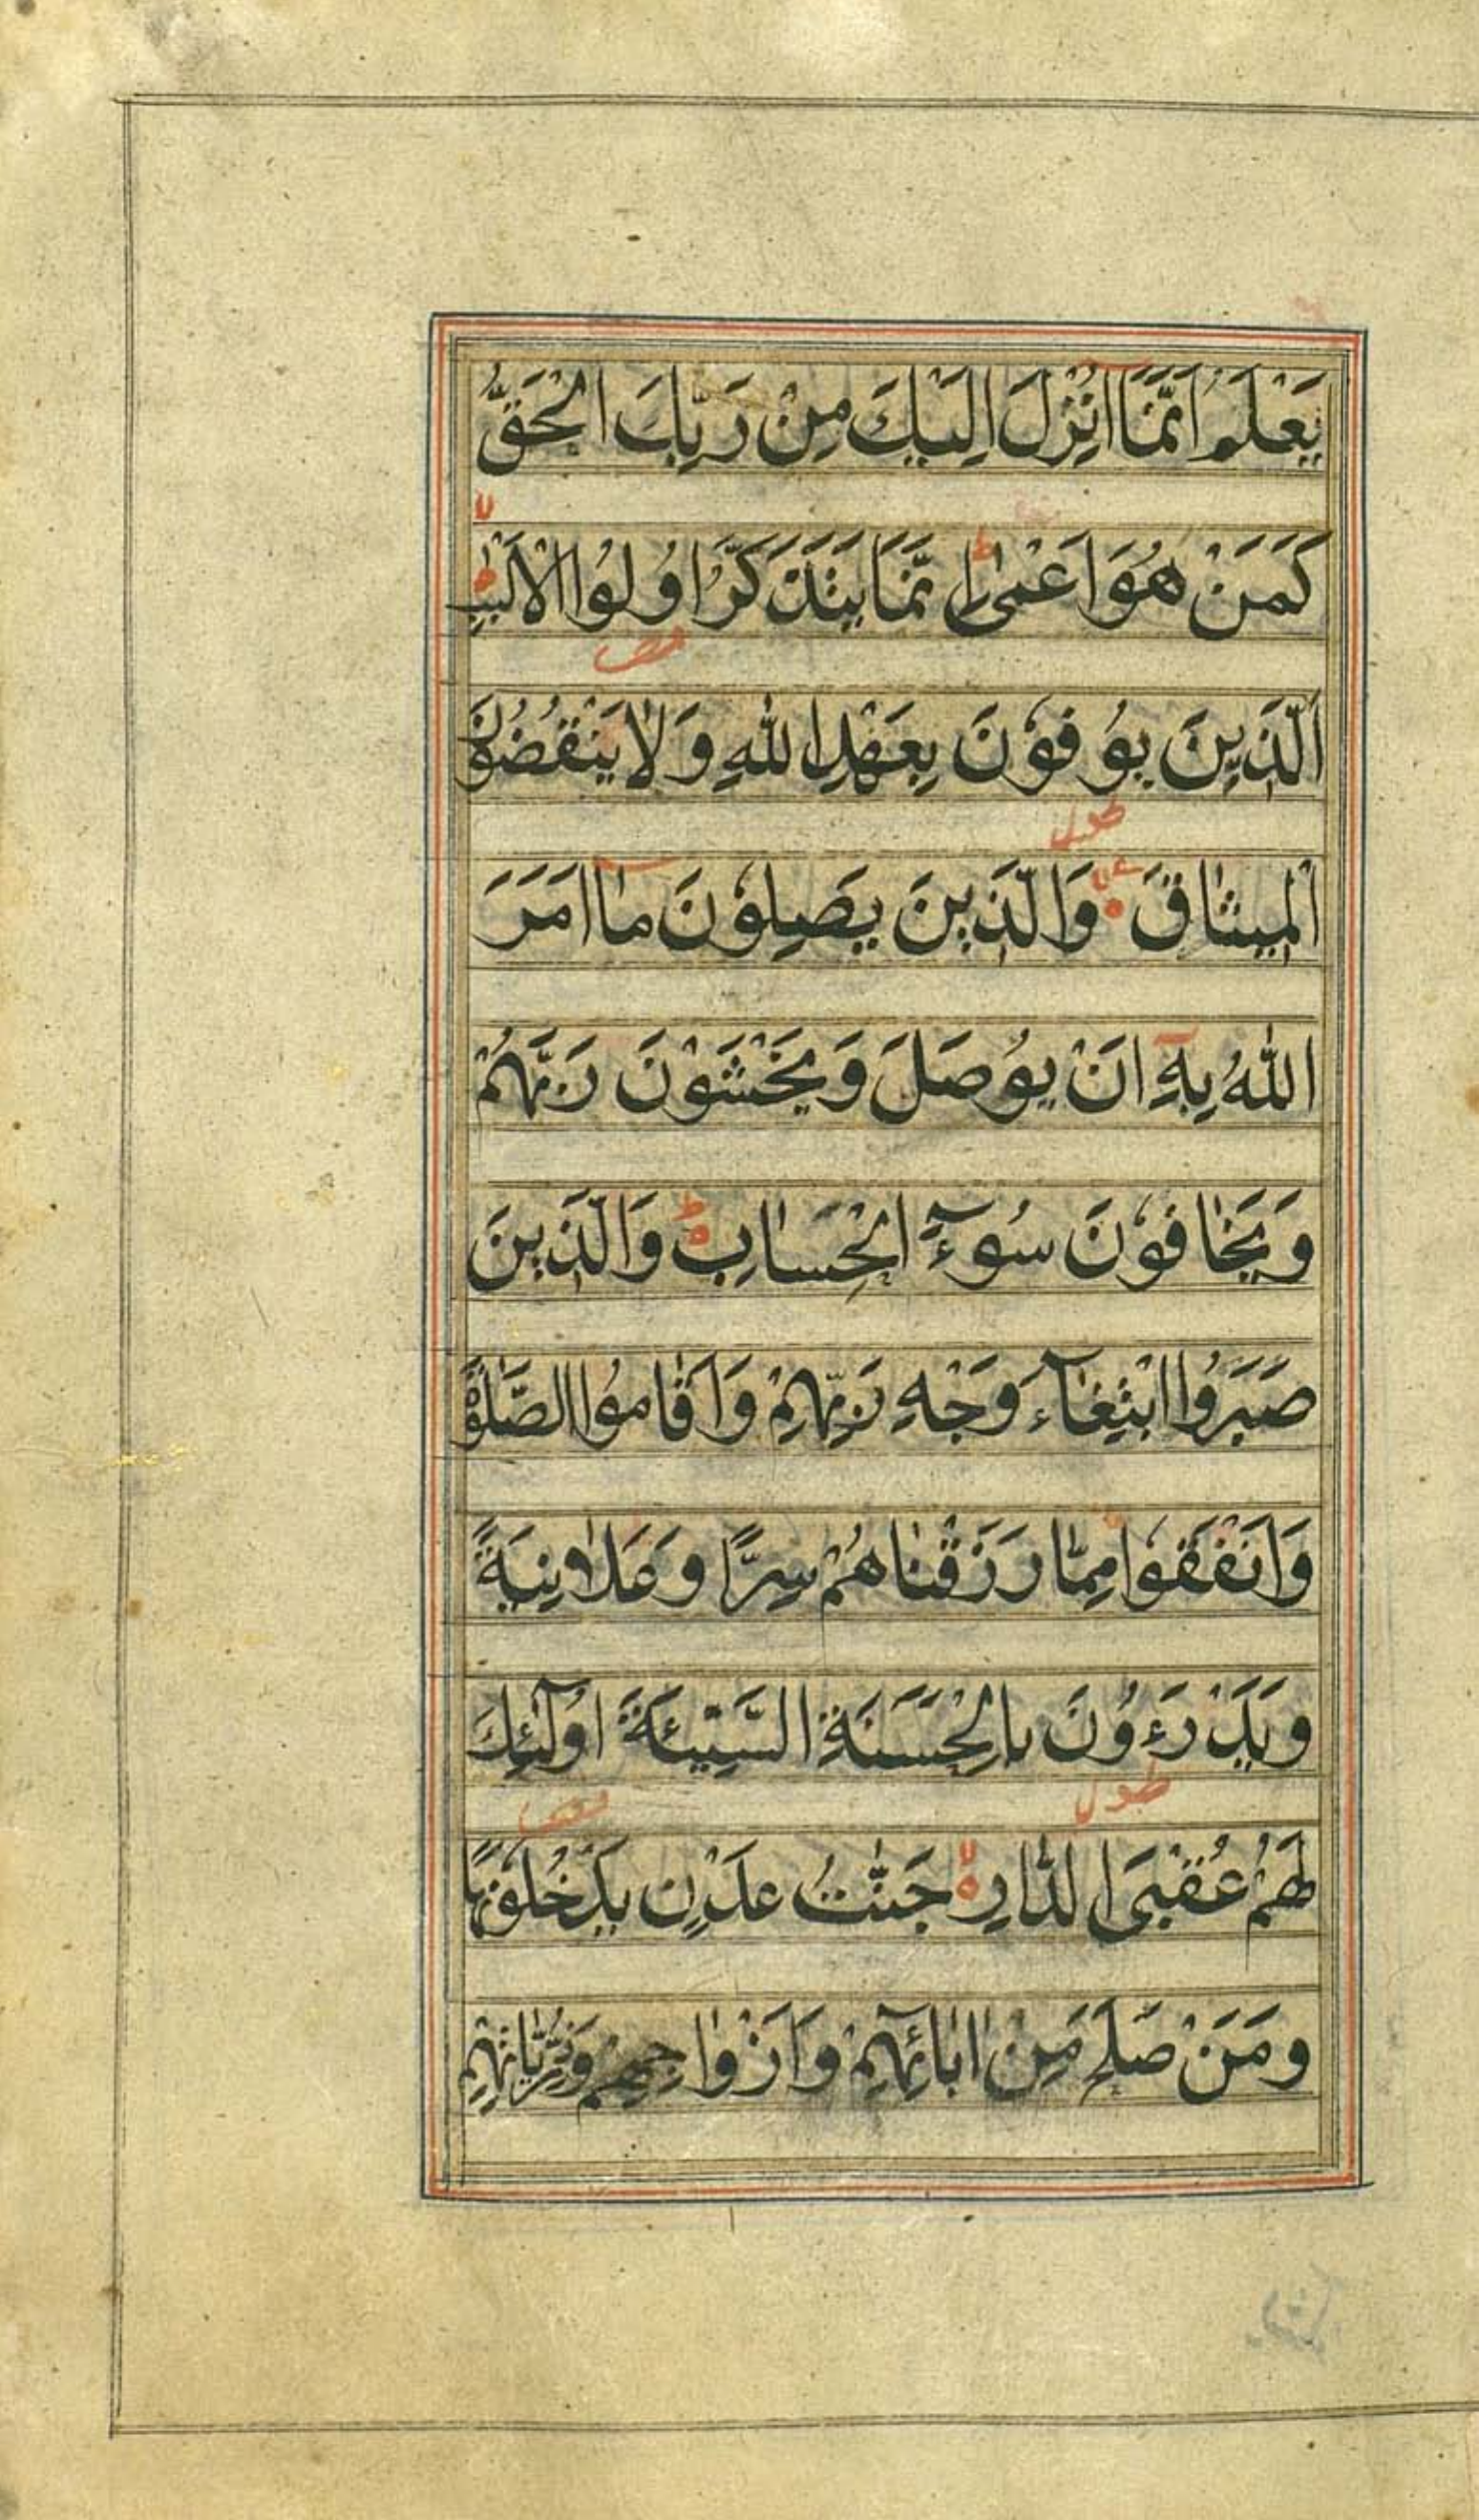 يَعْلَمُ اَنَّمَآ اُنْزِلَ اِلَيْكَ مِنْ رَبِّكَ الْحَقُّ
كَمَنْ هُوَ اَعْمٰى ط اِنَّمَا يَتَذَكَّرُ اُولُوا الْاَلْبٰبِ لا
الَّذِينَ يُوفُوْنَ بِعَهْدِ اللهِ وَلَا يَنْقُضُوْنَ
الْمِيثَاقَ وَالَّذِينَ يَصِلُوْنَ مَآ اَمَرَ
اللهُ بِهٖٓ اَنْ يُوصَلَ وَيَخْشَوْنَ رَبَّهُمْ
وَيَخَافُوْنَ سُوءَٓ الْحِسَابِ ط وَالَّذِينَ
صَبَرُوا ابْتِغَآءَ وَجْهِ رَبِّهِمْ وَاَقَامُوا الصَّلٰوةَ
وَاَنْفَقُوا مِمَّا رَزَقْنَاهُمْ سِرًّا وَعَلَانِيَةً
وَيَدْرَءُونَ بِالْحَسَنَةِ السَّيِّئَةَ اُولٰٓئِكَ
لَهُمْ عُقْبَى الدَّارِ لا جَنّٰتُ عَدْنٍ يَدْخُلُوْنَهَا
وَمَنْ صَلَحَ مِنْ اٰبَائِهِمْ وَاَزْوَاجِهِمْ وَذُرِّيَّاتِهِمْ